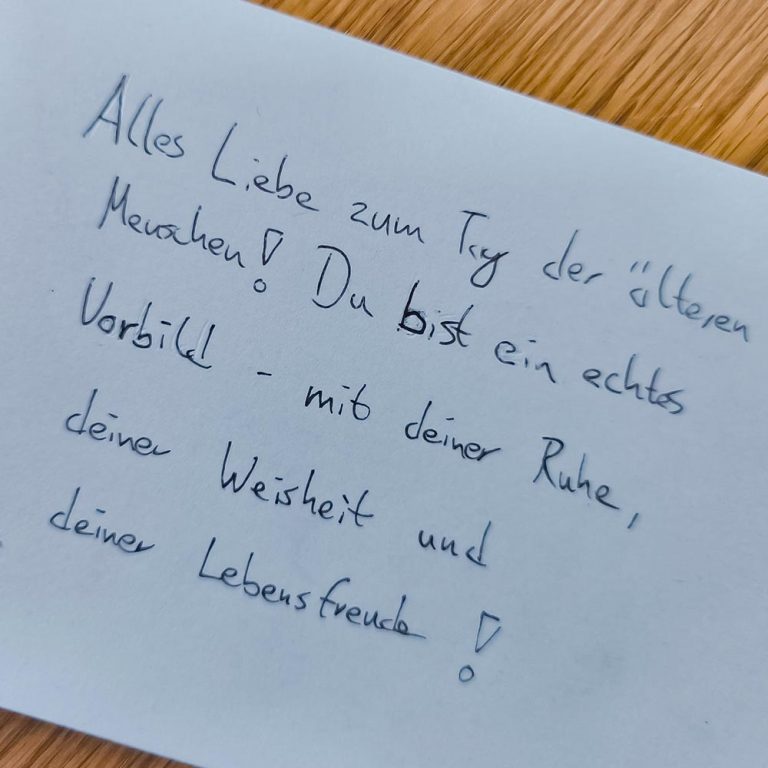 Alles Liebe zum Tag der älteren
Menschen! Du bist ein echtes
Vorbild - mit deiner Ruhe,
deiner Weisheit und
deiner Lebensfreude!